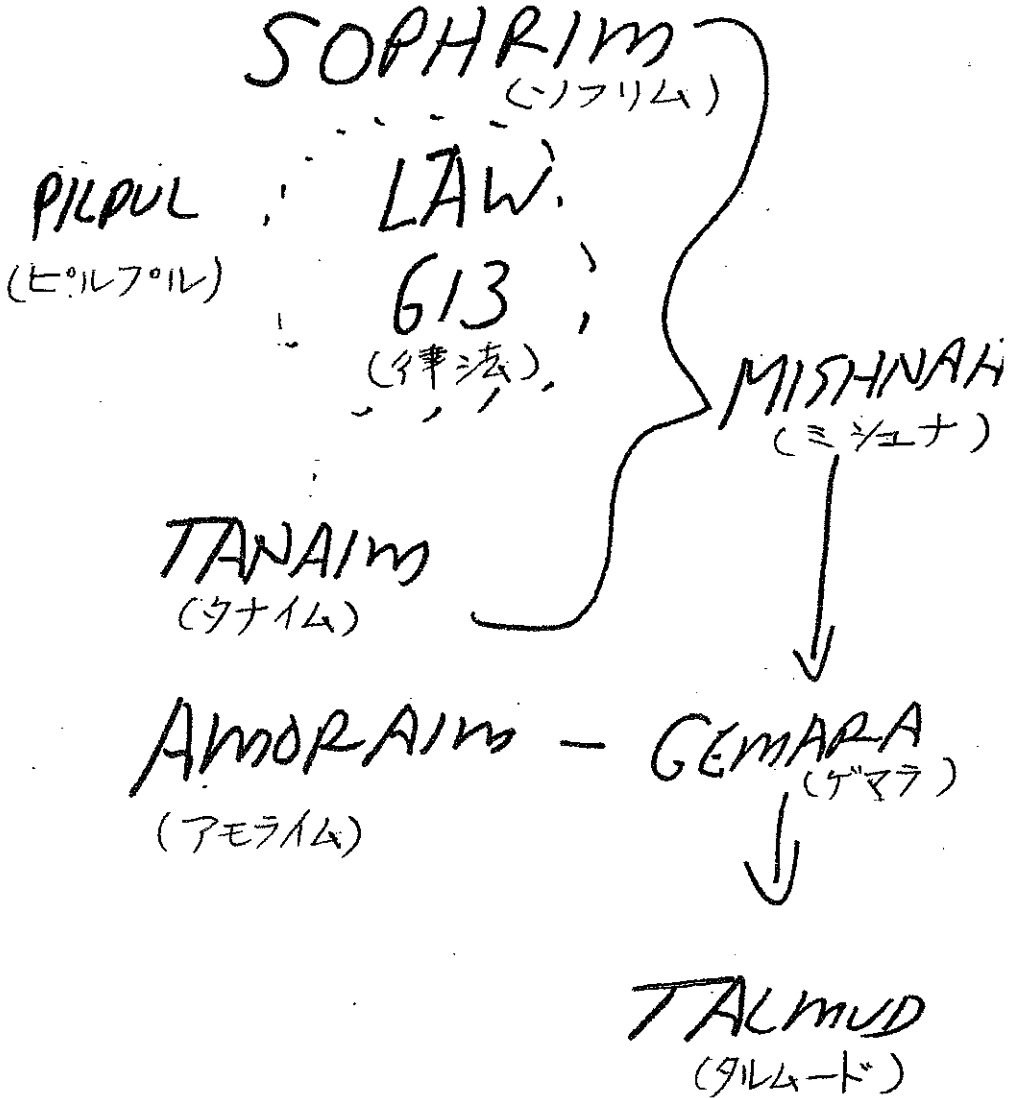 SOPHRIM
(ソフリム)
PILPUL
(ピルプル)
LAW
613
(律法)
MISHNAH
(ミシュナ)
TANAIM
(タナイム)
AMORAIM – GEMARA
(アモライム)
(ゲマラ)
TALMUD
(タルムード)